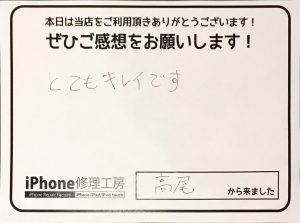 本日は当店をご利用頂きありがとうございます！
ぜひご感想をお願いします！
とてもキレイです
iPhone修理工房
iPhone Repair Factory iPhone/iPad/iPod touch
高尾 から来ました